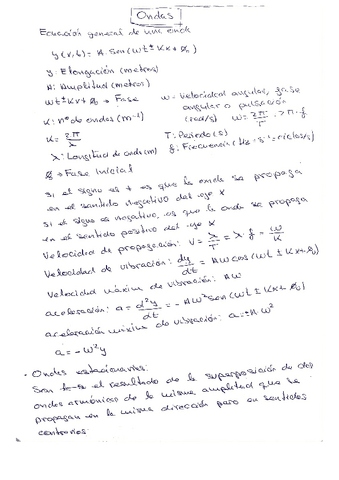 Ondas
Ecuación general de una onda
y(x,t) = A · Sen(ωt ± Kx + φ₀)
y: Elongación (metros)
A: Amplitud (metros)
ωt ± Kx + φ₀ → Fase
ω = Velocidad angular, fase angular o pulsación (rad/s) ω = 2π/T = 2π · f
K: nº de ondas (m⁻¹)
K = 2π/λ
T: Periodo (s)
λ: Longitud de onda (m) f: Frecuencia (Hz · s⁻¹ = ciclos/s)
φ₀ → Fase Inicial
si el signo es + es que la onda se propaga
en el sentido negativo del eje X
si el signo es negativo, es que la onda se propaga
en el sentido positivo del eje X
Velocidad de propagación: V = λ/T = λ · f = ω/K
Velocidad de vibración: dy/dt = Aω cos(ωt ± Kx + φ₀)
Velocidad máxima de vibración: Aω
aceleración: a = d²y/dt = - Aω² sen(ωt ± Kx + φ₀)
aceleración máxima de vibración: a = ± A ω²
a = - ω² y
• Ondas estacionarias:
Son el resultado de la superposición de dos
ondas armónicas de la misma amplitud que se
propagan en la misma dirección pero en sentidos
contrarios